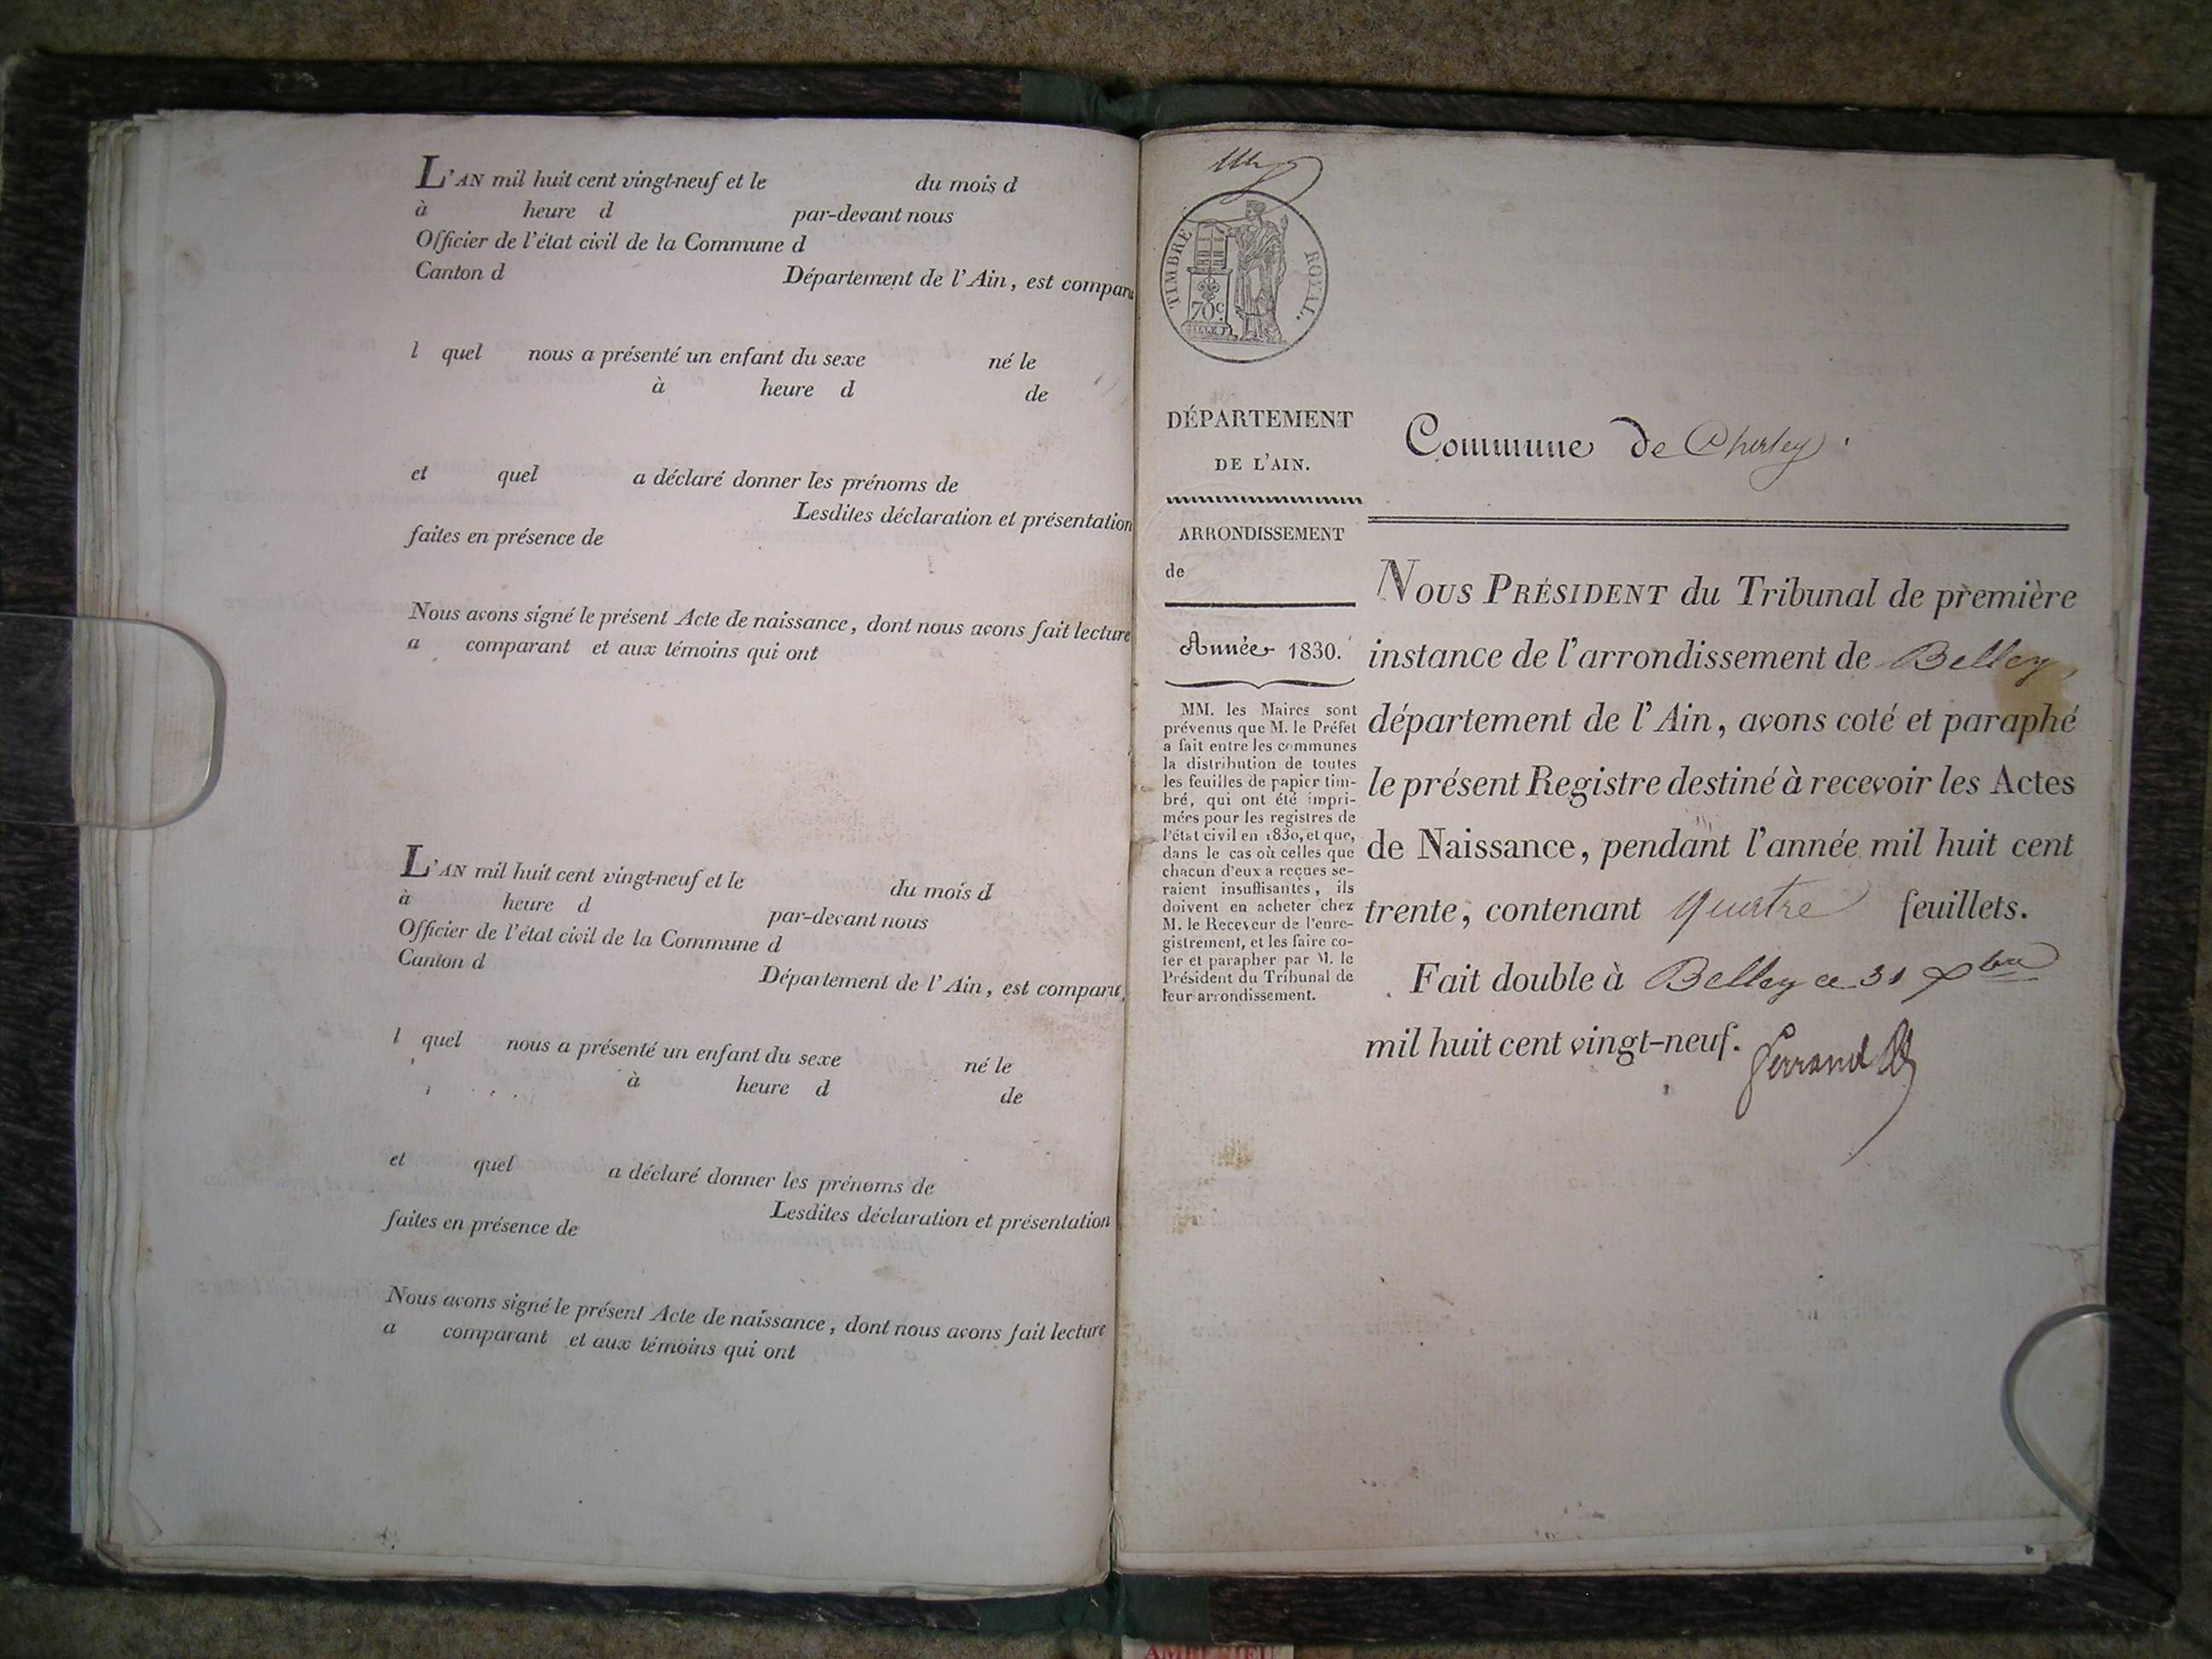 L'AN mil huit cent vingt-neuf et le du mois d
à heure d par-devant nous
Officier de l'état civil de la Commune d
Canton d Département de l'Ain, est comparu
l quel nous a présenté un enfant du sexe né le
à heure d de
et quel a déclaré donner les prénoms de
Lesdites déclaration et présentation
faites en présence de
Nous avons signé le présent Acte de naissance, dont nous avons fait lecture
a comparant et aux témoins qui ont
L'AN mil huit cent vingt-neuf et le du mois d
à heure d par-devant nous
Officier de l'état civil de la Commune d
Canton d Département de l'Ain, est comparu,
l quel nous a présenté un enfant du sexe né le
à heure d de
et quel a déclaré donner les prénoms de
Lesdites déclaration et présentation
faites en présence de
Nous avons signé le présent Acte de naissance, dont nous avons fait lecture
a comparant et aux témoins qui ont
TIMBRE ROYAL.
70c.
DÉPARTEMENT
DE L'AIN.
ARRONDISSEMENT
de
Année 1830.
MM. les Maires sont
prévenus que M. le Préfet
a fait entre les communes
la distribution de toutes
les feuilles de papier tim-
bré, qui ont été impri-
mées pour les registres de
l'état civil en 1830, et que,
dans le cas où celles que
chacun d'eux a reçues se-
raient insuffisantes, ils
doivent en acheter chez
M. le Receveur de l'enre-
gistrement, et les faire co-
ter et parapher par M. le
Président du Tribunal de
leur arrondissement.
Commune de
NOUS PRÉSIDENT du Tribunal de première
instance de l'arrondissement de Belley,
département de l'Ain, avons coté et paraphé
le présent Registre destiné à recevoir les Actes
de Naissance, pendant l'année mil huit cent
trente, contenant quatre feuillets.
Fait double à Belley ce 31 Xbre
mil huit cent vingt-neuf.
AMBERIEU